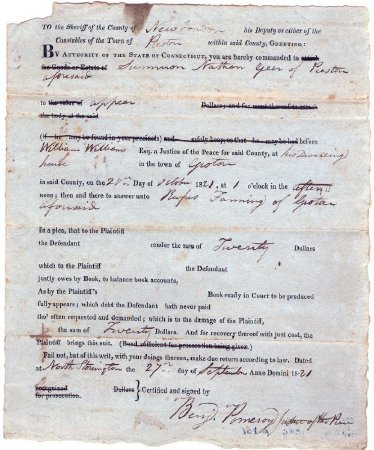 TO the Sheriff of the County of New London his Deputy or either of the
Constables of the Town of Preston within said County, GREETING:
BY AUTHORITY OF THE STATE OF CONNECTICUT, you are hereby commanded to attach
the Goods or Estate of Summon Nathan Geer of Preston
aforesaid
to the value of appear Dollars; and for want thereof to attach
the body of the said
(if he may be found in your precincts) and safely keep, so that he may be had before
William Williams Esq. a Justice of the Peace for said County, at his Dwelling
house in the town of Groton
in said County, on the 27th Day of October 1821, at 1 o'clock in the after
noon; then and there to answer unto Rufus Fanning of Groton
aforesaid
In a plea, that to the Plaintiff
the Defendant render the sum of Twenty Dollars
which to the Plaintiff the Defendant
justly owes by Book, to balance book accounts,
As by the Plaintiff's Book ready in Court to be produced
fully appears; which debt the Defendant hath never paid
tho' often requested and demanded; which is to the damage of the Plaintiff,
the sum of Twenty Dollars. And for recovery thereof with just cost, the
Plaintiff brings this suit. (Bond sufficient for prosecution being given.)
Fail not, but of this writ, with your doings thereon, make due return according to law. Dated
at North Stonington the 27th day of September Anno Domini 1821
recognized Dollars } Certified and signed by
for prosecution.
Benj. Pomeroy Justice of the Peace